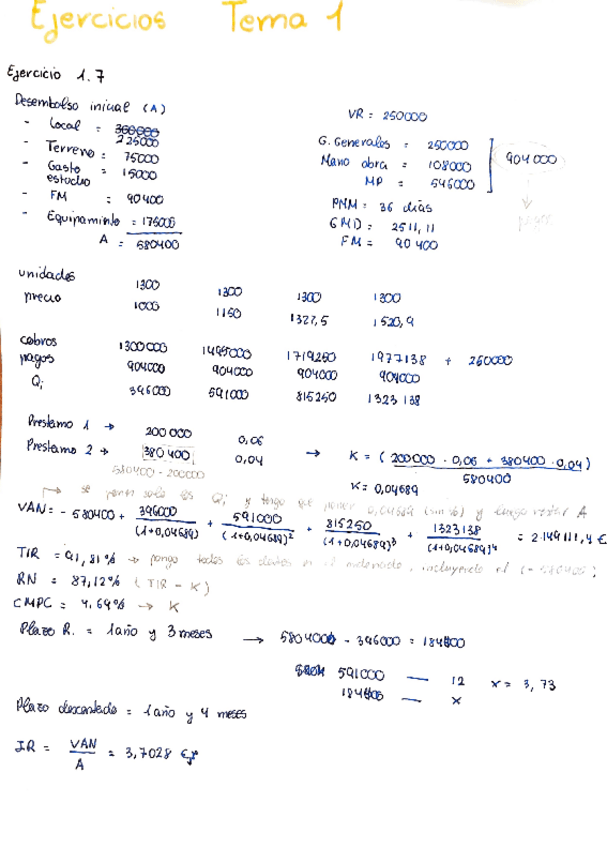 Ejercicios Tema 1
Ejercicio 1.7
Desembolso inicial (A)
- Local = 300000
225000
- Terreno = 75000
- Gasto estudio = 15000
- FM = 90400
- Equipamiento = 175000
A = 580400
VR = 250000
G. Generales = 250000
Mano obra = 108000
MP = 546000
904000
pagos
PNM = 36 días
GMD = 2511,11
FM = 90 400
unidades 1300 1300 1300 1300
precio 1000 1150 1322,5 1520,9
cobros 1300000 1495000 1719250 1977138 + 250000
pagos 904000 904000 904000 904000
Qi 396000 591000 815250 1323138
Prestamo 1 → 200000 0,06
Prestamo 2 → 380400 0,04
580400 - 200000
→ K = (200000 · 0,06 + 380400 · 0,04) / 580400
K = 0,04689
→ se ponen solo los Qi y tengo que poner 0,04689 (sin %) y luego restar A
VAN = - 580400 + 396000 / (1+0,04689) + 591000 / (1+0,04689)² + 815250 / (1+0,04689)³ + 1323138 / (1+0,04689)⁴ = 2.149.111,4 €
TIR = 91,81% → pongo todos los datos en el, incluyendo el (-580400)
RN = 87,12% (TIR - K)
CMPC = 4,69% → K
Plazo R. = 1 año y 3 meses → 580400 - 396000 = 184400
591000 — 12 x = 3,73
184400 — x
Plazo descontado = 1 año y 4 meses
IR = VAN / A = 3,7028